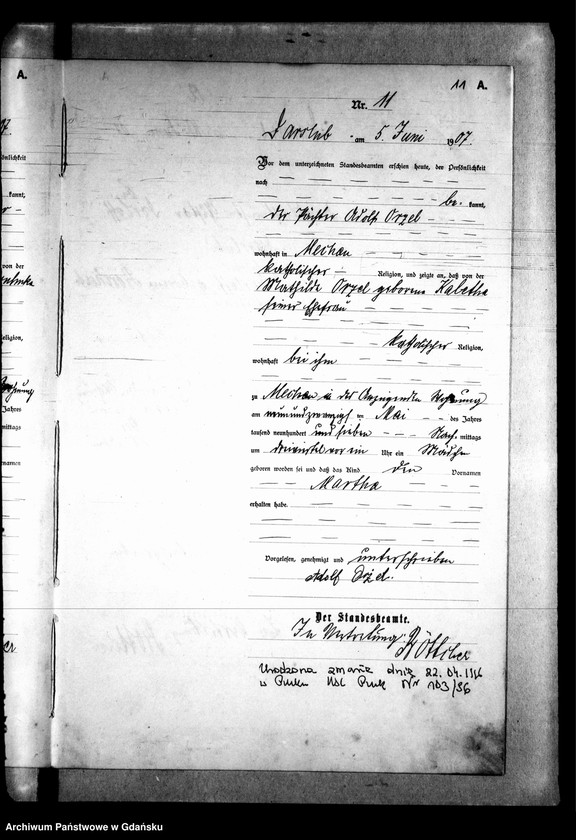 A.
11 A.
Nr. 11
Darslub am 5. Juni 1907.
Vor dem unterzeichneten Standesbeamten erschien heute, der Persönlichkeit
nach
be kannt,
der Pächter Adolf Orzel
wohnhaft in Mechau
katholischer Religion, und zeigte an, daß von der
Mathilde Orzel geborene Kaletha
seiner Ehefrau
katholischer Religion,
wohnhaft bei ihm
zu Mechau in der Wohnung
am neunundzwanzigsten Mai des Jahres
tausend neunhundert und sieben Nach mittags
um dreiviertel vor ein Uhr ein Mädchen
geboren worden sei und daß das Kind den Vornamen
Martha
erhalten habe.
Vorgelesen, genehmigt und unterschrieben
Adolf Orzel.
Der Standesbeamte.
In Vertretung
Böttcher
Urodzona zmarła dnia 22.04.
w Pucku USC Puck Nr 103/96
Archiwum Państwowe w Gdańsku